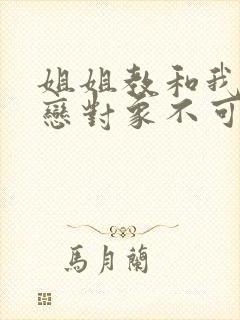 姐姐教和我
戀對象不可
馬月蘭